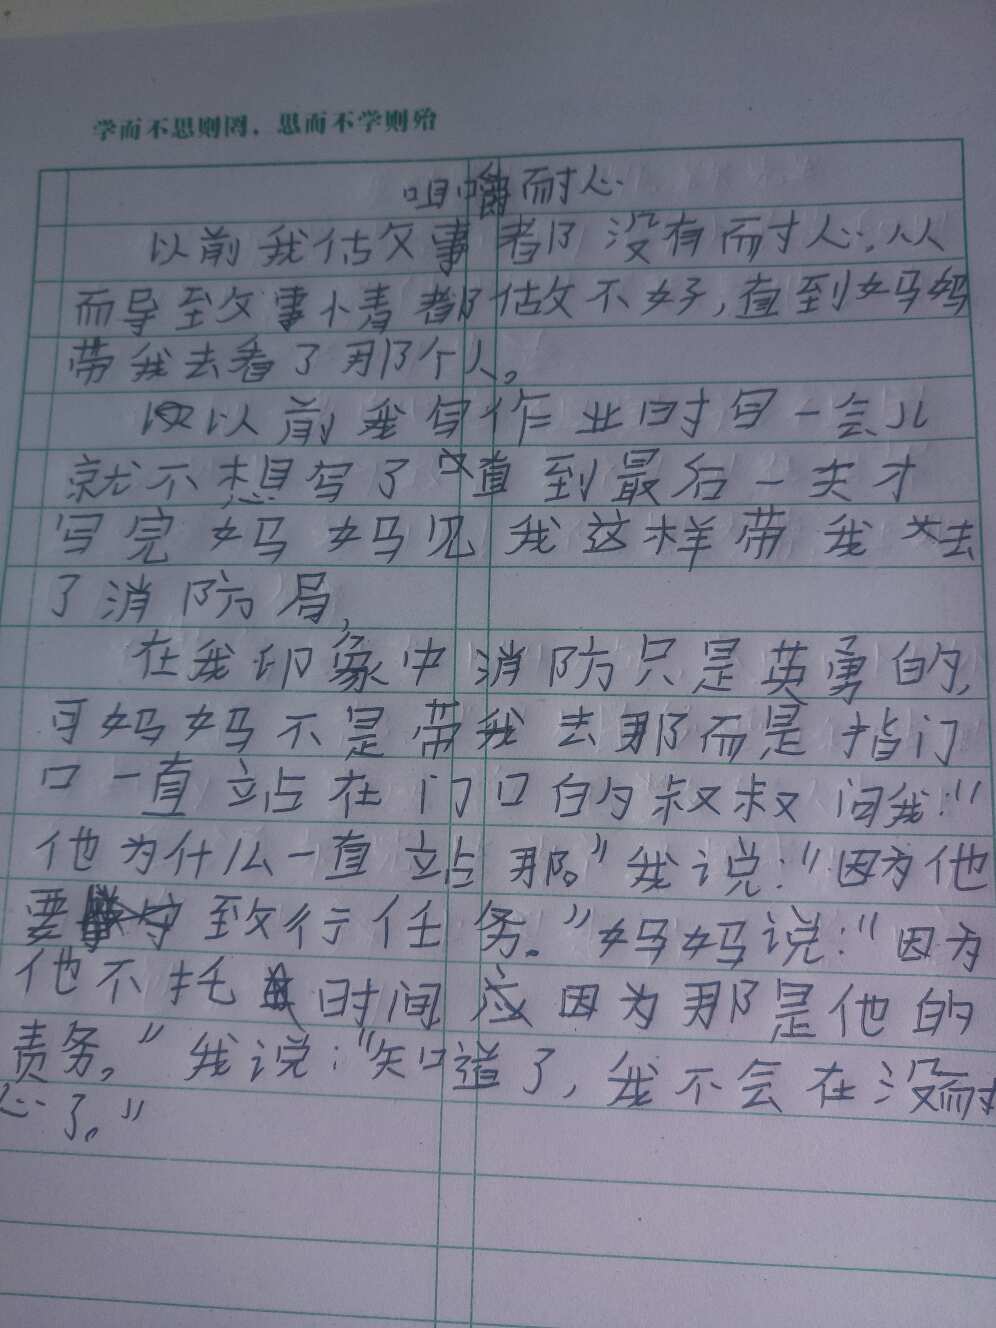 学而不思则罔，思而不学则殆
咀嚼耐心
以前我做事都没有耐心，从
而导至做事情都做不好，直到妈妈
带我去看了那个人。
以前我写作业时写一会儿
就不想写了直到最后一天才
写完妈妈见我这样带我去
了消防局，
在我印象中消防只是英勇的，
可妈妈不是带我去那而是指门
口一直站在门口的叔叔问我："
他为什么一直站那。"我说："因为他
要致行任务。"妈妈说："因为
他不托时间应因为那是他的
责务。"我说："知道了，我不会在没耐
心了。"